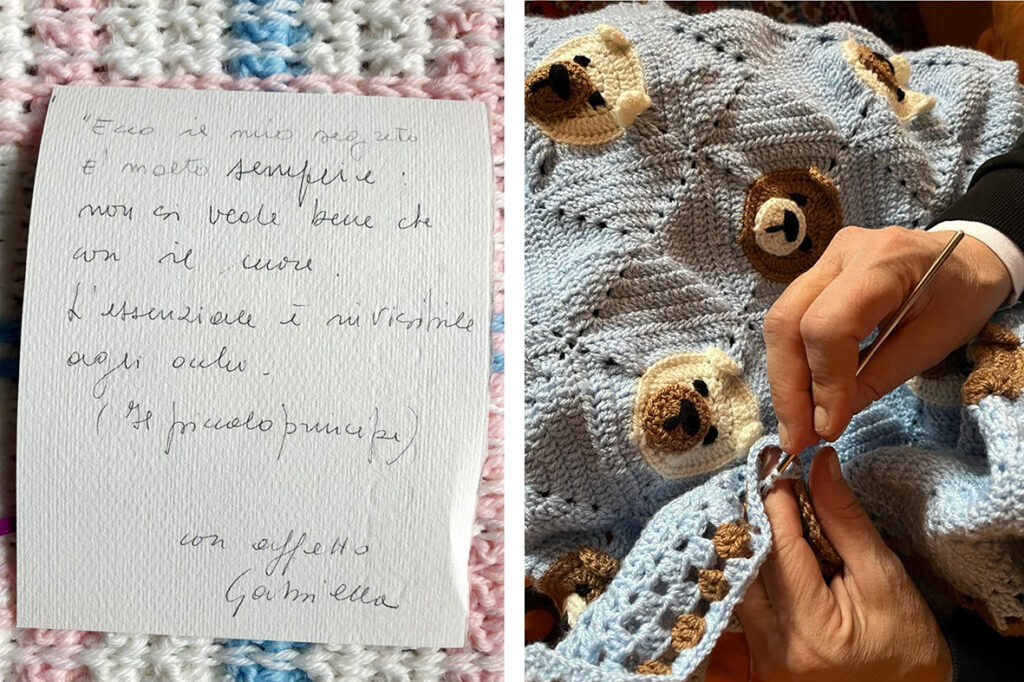 "Ecco il mio segreto
E' molto semplice :
non si vede bene che
con il cuore .
L'essenziale è invisibile
agli occhi .
( Il piccolo principe )
con affetto
Gabriella